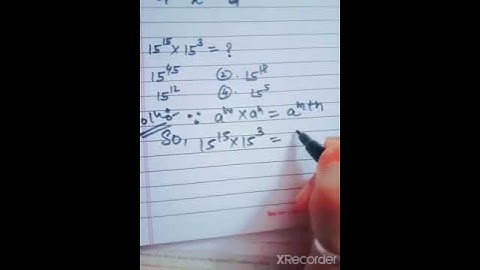 15¹⁵ × 15³ = ?
15⁴⁵ ②. 15¹⁸
15¹² ④. 15⁵
∵ aᵐ × aⁿ = aᵐ⁺ⁿ
So, 15¹⁵ × 15³ =
XRecorder